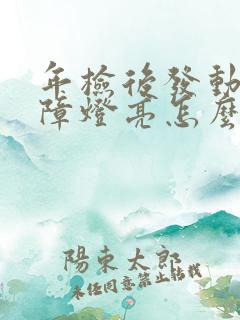 年檢後發動
障燈亮怎麼
陽東太郎
未經同意禁止轉載